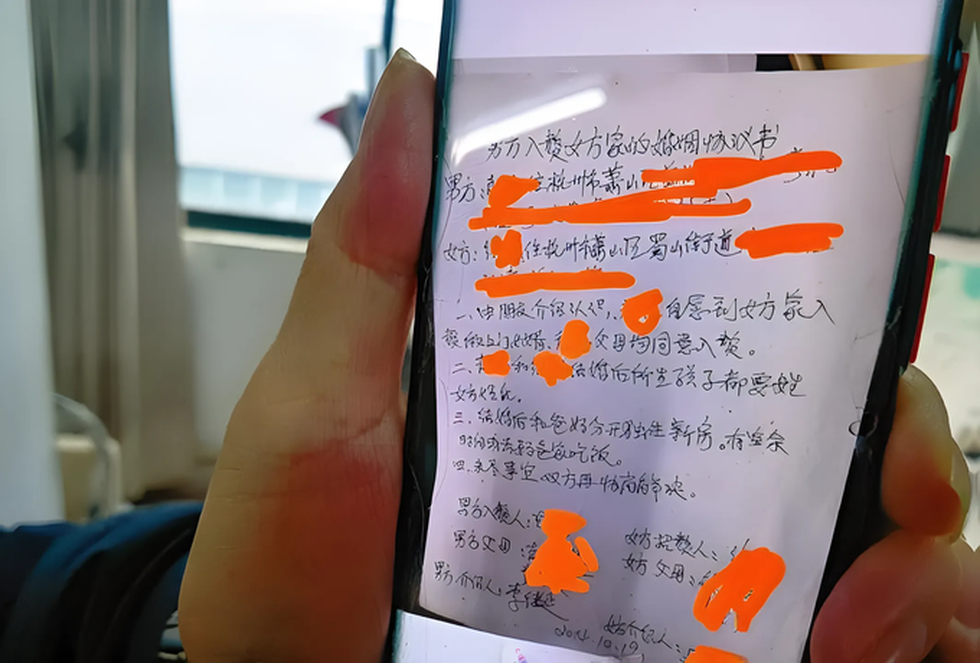 男方入赘女方家的婚姻协议书
男方: 住杭州市萧山区
女方: 住杭州市萧山区蜀山街道
一、由朋友介绍认识, 自愿到女方家入
赘做上门女婿, 父母均同意入赘。
二、 和 结婚后所生孩子都要姓
女方姓氏。
三、结婚后和爸妈分开独住新房。有空余
时间 爸爸吃饭。
四、未尽事宜双方再协商解决。
男方入赘人:
女方招赘人:
男方父母:
女方父母:
男方介绍人: 李
女方介绍人:
10.19